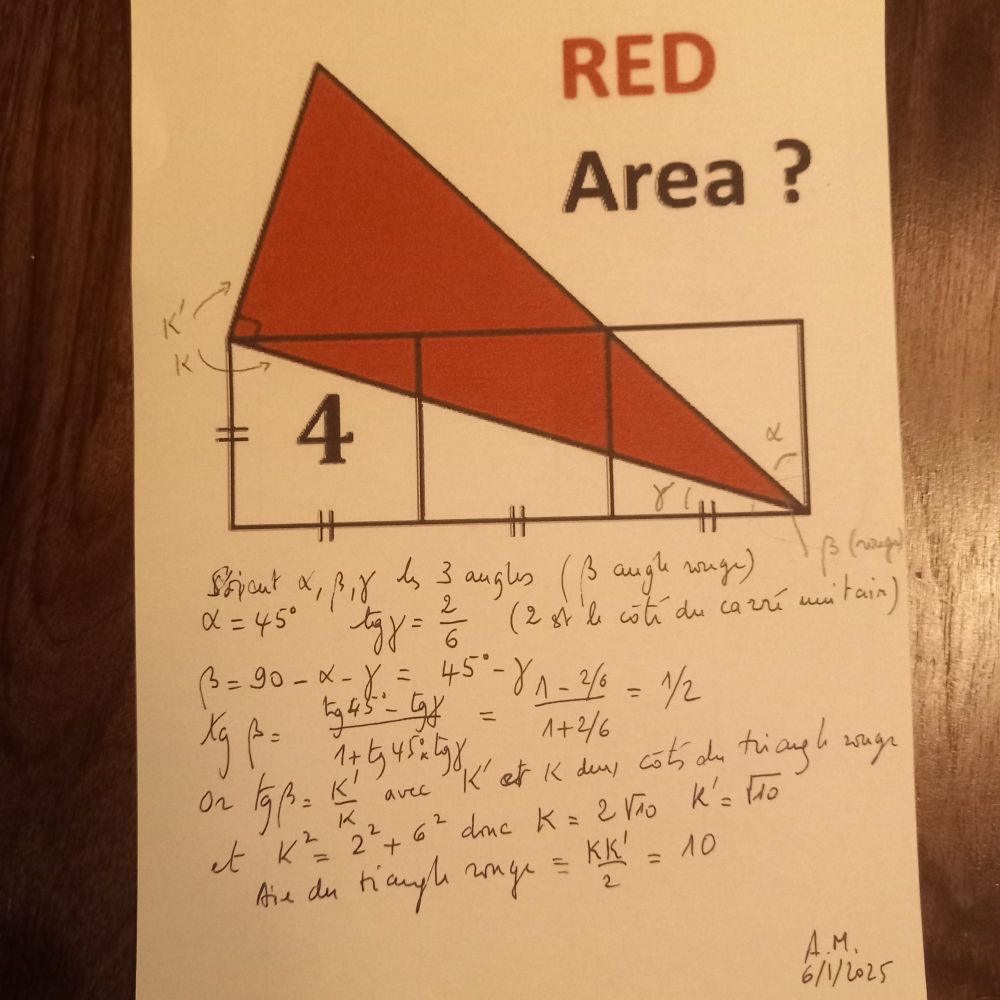 RED
Area ?
K'
K
4
α
γ
β (rouge)
Soient α, β, γ les 3 angles (β angle rouge)
α = 45° tg γ = 2/6 (2 est le côté du carré unitair)
β = 90 - α - γ = 45° - γ
tg β = (tg 45° - tg γ)/(1 + tg 45° x tg γ) = (1 - 2/6)/(1 + 2/6) = 1/2
Or tg β = K'/K avec K' et K deux côtés du triangle rouge
et K² = 2² + 6² donc K = 2√10 K' = √10
Aire du triangle rouge = KK'/2 = 10
A.M.
6/1/2025